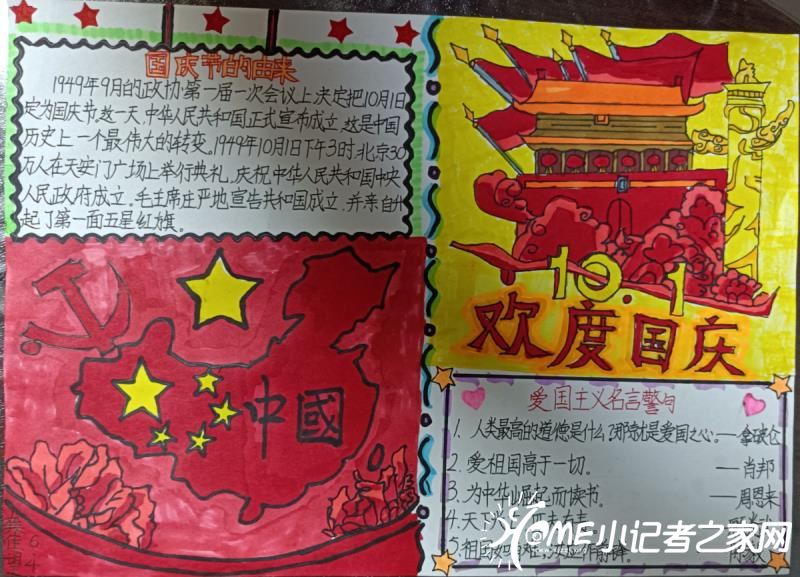 国庆节的由来
1949年9月的政协第一届一次会议上决定把10月1日
定为国庆节.这一天,中华人民共和国正式宣布成立,这是中国
历史上一个最伟大的转变.1949年10月1日下午3时,北京30
万人在天安门广场上举行典礼,庆祝中华人民共和国中央
人民政府成立.毛主席庄严地宣告共和国成立,并亲自升
起了第一面五星红旗.
10.1
欢度国庆
中國
爱国主义名言警句
1. 人类最高的道德是什么?那就是爱国之心.——拿破仑
2. 爱祖国高于一切。 ——肖邦
3. 为中华崛起而读书。 ——周恩来
4. 天下
5. 祖国如有难,
HOME小记者之家网
64